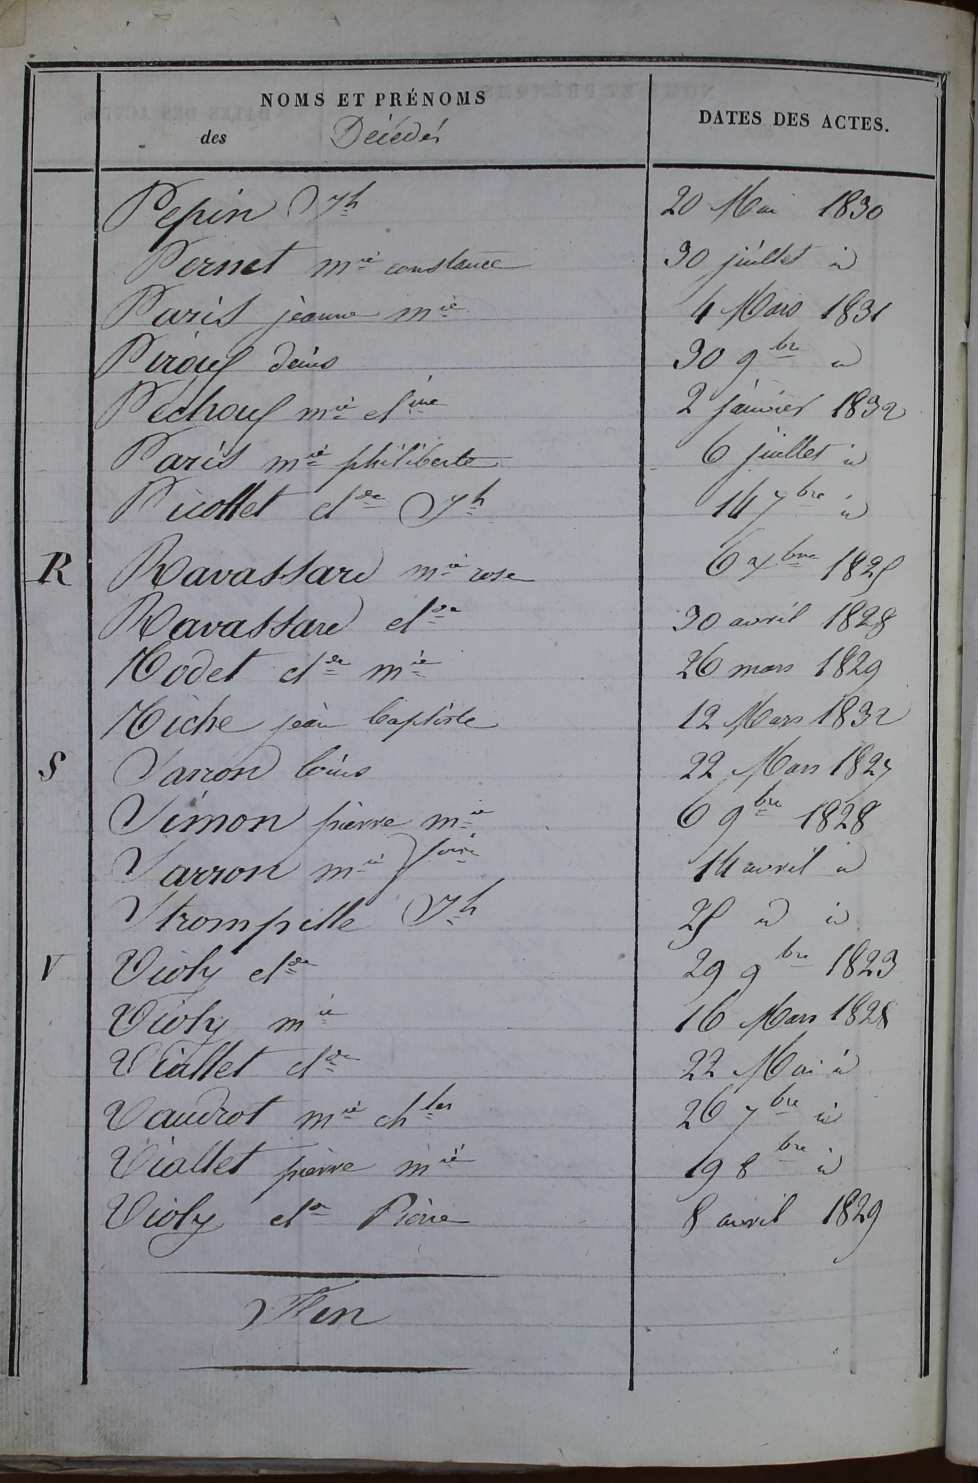 NOMS ET PRÉNOMS
des Décédés
DATES DES ACTES.
Pepin Jh 20 Mai 1830
Pernet mie constance 30 juillet id
Paris jeanne mie 4 Mars 1831
Piroux denis 30 9bre id
Pechoux mie cline 2 janvier 1832
Paris mie philiberte 6 juillet id
Picollet clde Jh 14 7bre id
R Ravassard mie rose 6 xbre 1825
Ravassard clde 30 avril 1828
Rodet clde mie 26 mars 1829
Riche jean baptiste 12 Mars 1832
S Sarron louis 22 Mars 1827
Simon pierre mie 6 9bre 1828
Sarron mie 14 avril id
Strompille Jh 25 id id
V Violy clde 29 9bre 1823
Violy mie 16 Mars 1828
Viallet clde 22 Mai id
Vaudrot mie chles 26 7bre id
Viallet pierre mie 19 8bre id
Violy clde Pierre 8 avril 1829
Fin